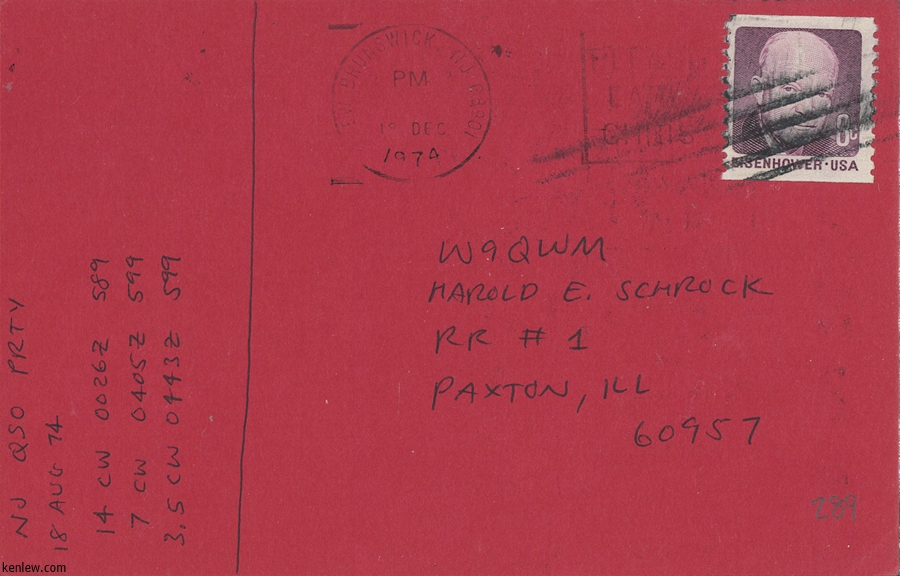 PM
DEC
1974
8c
EISENHOWER·USA
W9QWM
HAROLD E. SCHROCK
RR # 1
PAXTON, ILL
60957
289
NJ QSO PRTY
18 AUG 74
14 CW 0026Z 589
7 CW 0405Z 599
3.5 CW 0443Z 599
kenlew.com